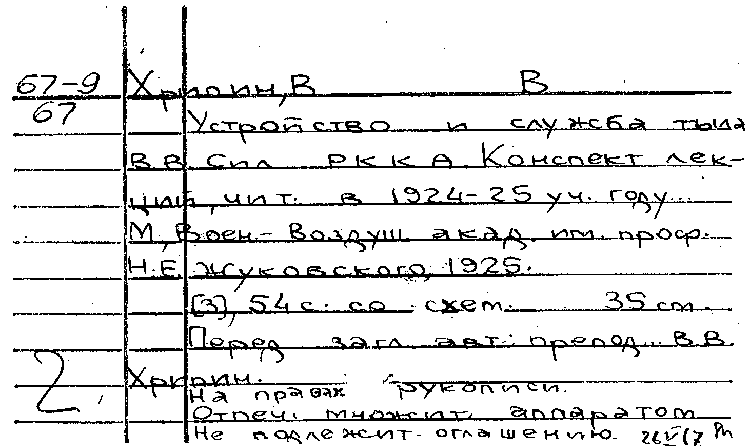 67-9 Хрипин, В В
67 Устройство и служба тыла
В.В. Сил РККА. Конспект лек-
ций, чит. в 1924-25 уч. году.
М, Воен.-Воздуш. акад. им. проф.
Н.Е. Жуковского, 1925.
[3], 54 с. со схем. 35 см.
Перед загл. авт: препод. В.В.
2. Хрипин.
На правах рукописи.
Отпеч. множит. аппаратом
Не подлежит оглашению.